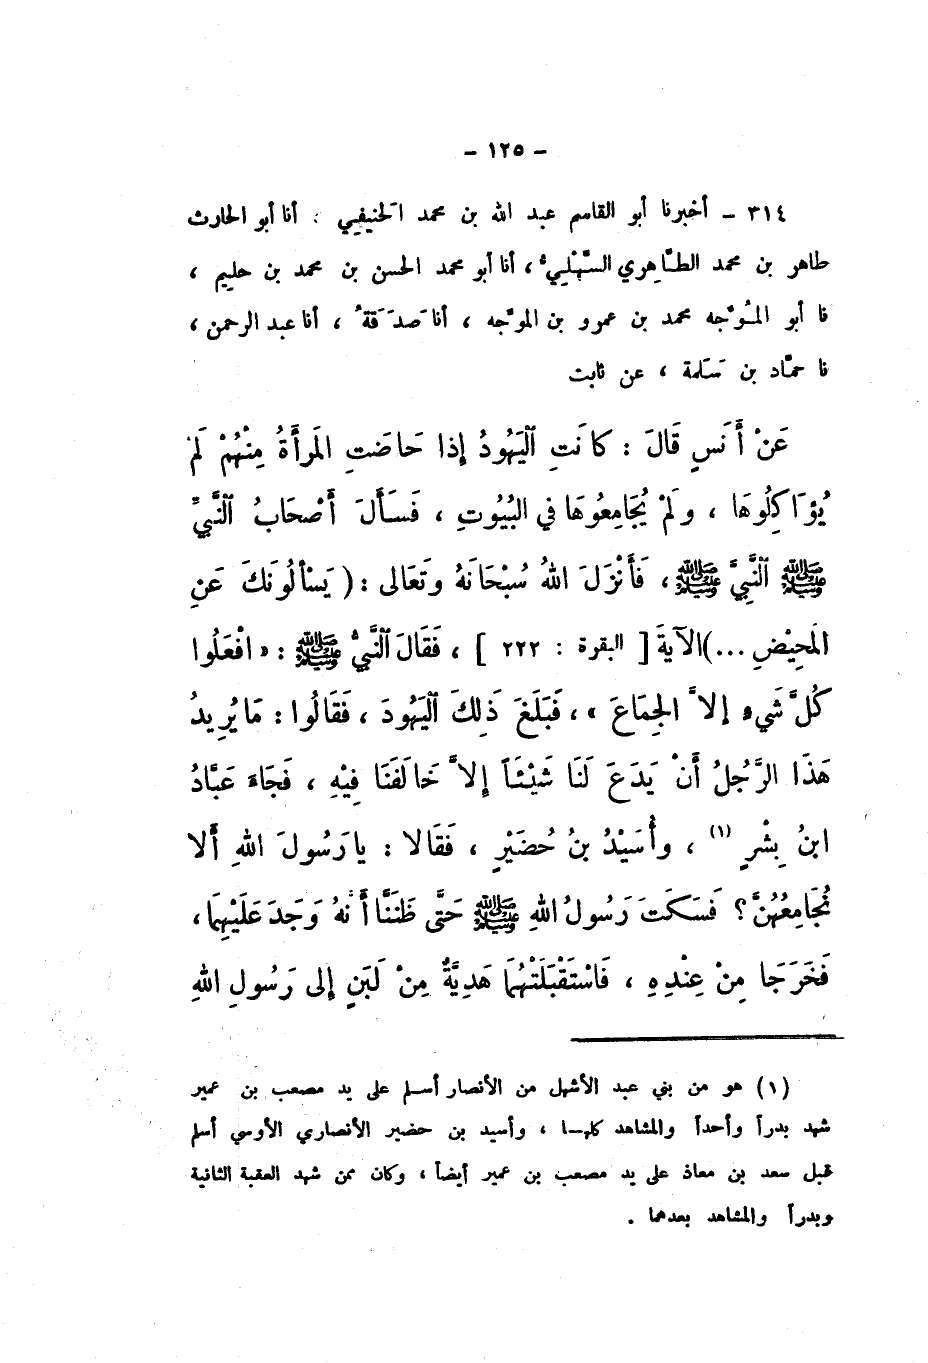 - ١٢٥ -
٣١٤ - أخبرنا أبو القاسم عبد الله بن محمد الحنيفي ، أنا أبو الحارث
طاهر بن محمد الطاهري السَّهْلِيُّ ، أنا أبو محمد الحسن بن محمد بن حليم ،
نا أبو المُوَجّه محمد بن عمرو بن الموَجّه ، أنا صَدَقةُ ، أنا عبد الرحمن ،
نا حمّاد بن سَلَمة ، عن ثابت
عَنْ أَنَسٍ قَالَ : كَانَتِ ٱلْيَهُودُ إِذا حَاضَتِ المَرأَةُ مِنْهُمْ لَمْ
يُؤَاكِلُوهَا ، ولَمْ يُجَامِعُوهَا في البُيُوتِ ، فَسَأَلَ أَصْحَابُ ٱلنَّبِيِّ
ﷺ ٱلنَّبِيَّ ﷺ ، فَأَنْزَلَ اللهُ سُبْحَانَهُ وتَعَالى : ( يَسْأَلُونَكَ عَنِ
المَحِيْضِ ... ) الآيةَ [ البقرة : ٢٢٢ ] ، فَقَالَ ٱلنَّبيُّ ﷺ : « افْعَلُوا
كُلَّ شَيءٍ إلاَّ الجِمَاعَ » ، فَبَلَغَ ذَلِكَ ٱليَهُودَ ، فَقَالُوا : مَا يُرِيدُ
هَذَا الرَّجُلُ أَنْ يَدَعَ لَنَا شَيْئاً إلاَّ خَالَفَنَا فِيْهِ ، فَجَاءَ عَبَّادُ
ابنُ بِشْرٍ (١) ، وأُسَيْدُ بنُ حُضَيْرٍ ، فَقَالا : يا رَسُولَ اللهِ أَلا
نُجَامِعُهُنَّ ؟ فَسَكَتَ رَسُولُ اللهِ ﷺ حَتَّى ظَنَنَّا أَنَّهُ وَجَدَ عَلَيْهِمَا ،
فَخَرَجَا مِنْ عِنْدِهِ ، فَاسْتَقْبَلَتْهُمَا هَدِيَّةٌ مِنْ لَبَنٍ إلى رَسُولِ اللهِ
(١) هو من بني عبد الأشهل من الأنصار أسلم على يد مصعب بن عمير
شهد بدراً وأحداً والمشاهد كلها ، وأسيد بن حضير الأنصاري الأوسي أسلم
قبل سعد بن معاذ على يد مصعب بن عمير أيضاً ، وكان ممن شهد العقبة الثانية
وبدراً والمشاهد بعدهما .